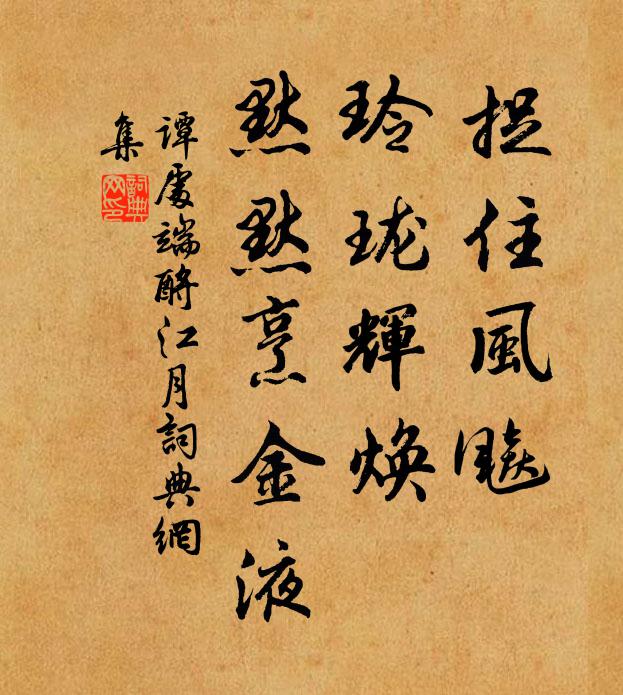 捉住風飈
玲瓏輝煥
默默烹金液
譚處端酹江月詞典網
集
詞典网印